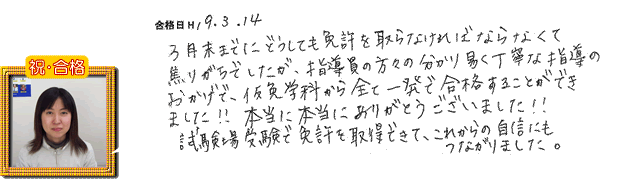 合格日H19.3.14
3月末までにどうしても免許を取らなければならなくて
焦りがちでしたが、指導員の方々の分かり易く丁寧な指導の
おかげで、仮免学科から全て一発で合格することができ
ました!! 本当に本当にありがとうございました!!
試験場受験で免許を取得できて、これからの自信にも
つながりました。
祝・合格